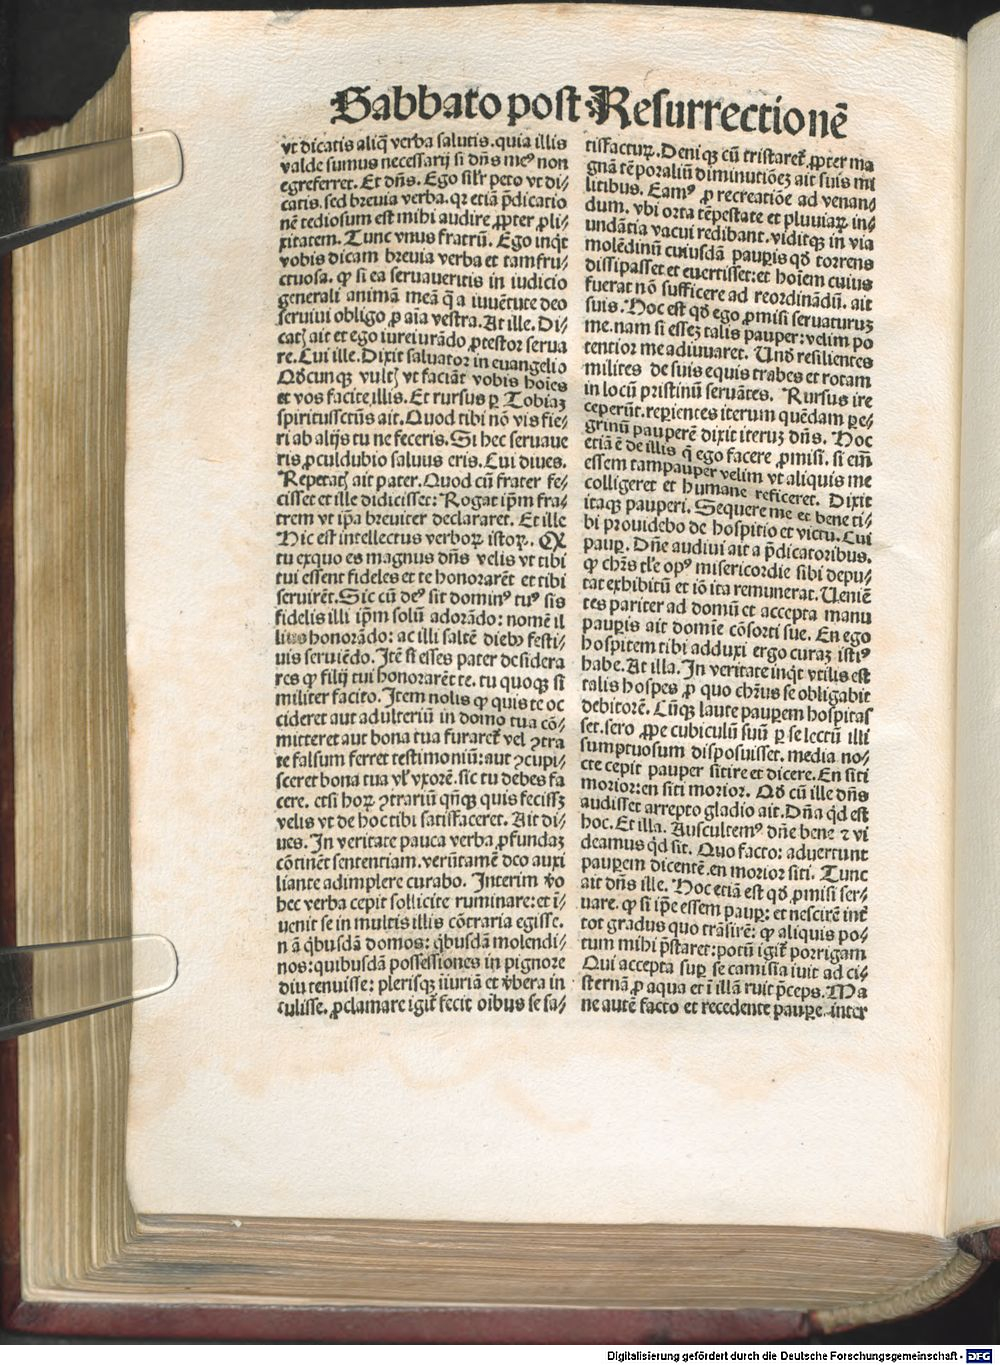 Sabbato post Resurrectionē
vt dicatis aliq̄ verba salutis. quia illis
valde sumus necessarij si dn̄s meꝰ non
egreferret. Et dn̄s. Ego sil'r peto vt di⸗
catis. sed breuia verba. qꝛ etiā p̄dicatio
nē tediosum est mihi audire ꝓpter ꝓli⸗
xitatem. Tunc vnus fratrū. Ego inq̇t
vobis dicam breuia verba et tam fru⸗
ctuosa. ꝙ si ea seruaueritis in iudicio
generali animā meā q̄ a iuuētute deo
seruiui obligo ꝓ aīa vestra. At ille. Di⸗
catꝭ ait et ego iureiurādo ꝓtestor serua
re. Cui ille. Dixit saluator in euangelio
Qd̄cunqꝫ vultꝭ vt faciāt vobis hoīes
et vos facite illis. Et rursus ꝑ Tobiaꝫ
spiritussctūs ait. Quod tibi nō vis fie⸗
ri ab alijs tu ne feceris. Si hec seruaue
ris ꝓculdubio saluus eris. Cui diues.
Repetatꝭ ait pater. Quod cū frater fe⸗
cisset et ille didicisset: Rogat ip̄m fra⸗
trem vt ip̄a breuiter declararet. Et ille
Hic est intellectus verboꝝ istoꝝ. Ex
tu exquo es magnus dn̄s velis vt tibi
tui essent fideles et te honorarēt et tibi
seruirēt. Sic cū deꝰ sit dominꝰ tuꝰ sis
fidelis illi ip̄m solū adorādo: nomē il
lius honorādo: ac illi saltē diebꝰ festi⸗
uis seruiēdo. Itē si esses pater desidera
res ꝙ filij tui honorarēt te. tu quoqꝫ si
militer facito. Item nolis ꝙ quis te oc
cideret aut adulteriū in domo tua cō⸗
mitteret aut bona tua furaret̄ vel ꝯtra
te falsum ferret testimoniū: aut ꝯcupi⸗
sceret bona tua vl' vxorē. sic tu debes fa
cere. etsi hoꝝ ꝯtrariū qn̄qꝫ quis fecissꝫ
velis vt de hoc tibi satisfaceret. Ait di⸗
ues. In veritate pauca verba ꝓfundaꝫ
cōtinēt sententiam. verūtamē deo auxi
liante adimplere curabo. Interim v̇o
hec verba cepit sollicite ruminare: et ī⸗
uenit se in multis illis cōtraria egisse.
n ā q̇busdā domos: q̇busdā molendi⸗
nos: quibusdā possessiones in pignore
diu tenuisse: plerisqꝫ iiuriā et v̇bera in
tulisse. ꝓclamare igit̄ fecit oībus se sa⸗
tisfacturꝝ. Deniqꝫ cū tristaret̄ ꝓpter ma
gnā tēporaliū diminutiōeꝫ ait suis mi
litibus. Eamꝰ ꝓ recreatiōe ad venan⸗
dum. vbi orta tēpestate et pluuiaꝝ in⸗
undātia vacui redibant. viditqꝫ in via
molēdinū cuiusdā pauꝑis qd̄ torrens
dissipasset et euertisset: et hoīem cuius
fuerat nō sufficere ad reordinādū. ait
suis. Hoc est qd̄ ego ꝓmisi seruaturuꝫ
me. nam si esseꝫ talis pauper: velim po
tentior me adiuuaret. Und̄ resilientes
milites de suis equis trabes et rotam
in locū pristinū seruātes. Rursus ire
ceperūt. reꝑientes iterum quēdam ꝑe⸗
grinū pauperē dixit iteruꝫ dn̄s. Hoc
etiā ē de illis q̄ ego facere ꝓmisi. si em̄
essem tam pauper velim vt aliquis me
colligeret et humane reficeret. Dixit
itaqꝫ pauperi. Sequere me et bene ti⸗
bi prouidebo de hospitio et victu. Cui
pauꝑ. Dn̄e audiui ait a p̄dicatoribus.
ꝙ chr̄s tl'e opꝰ misericordie sibi depu⸗
tat exhibitū et iō ita remunerat. Ueniē
tes pariter ad domū et accepta manu
pauꝑis ait domīe cōsorti sue. En ego
hospitem tibi adduxi ergo curaꝫ istiꝰ
habe. At illa. In veritate inq̇t vtilis est
talis hospes ꝓ quo chr̄us se obligabit
debitorē. Cūqꝫ laute pauꝑem hospitas
set. sero ꝓpe cubiculū suū ꝑ se lectū illi
sumptuosum disposuisset. media no⸗
cte cepit pauper sitire et dicere. En siti
morior: en siti morior. Qd̄ cū ille dn̄s
audisset arrepto gladio ait. Dn̄a q̇d est
hoc. Et illa. Auscultemꝰ dn̄e bene ⁊ vi
deamus q̇d sit. Quo facto: aduertunt
pauꝑem dicentē. en morior siti. Tunc
ait dn̄s ille. Hoc etiā est qd̄ ꝓmisi ser⸗
uare. ꝙ si ip̄e essem pauꝑ: et nescirē int̄
tot gradus quo trāsirē: ꝙ aliquis po⸗
tum mihi p̄staret: potū igit̄ porrigam
Qui accepta suꝑ se camisia iuit ad ci⸗
sternā ꝓ aqua et ī illā ruit p̄ceps. Ma
ne autē facto et recedente pauꝑe. inter
Digitalisierung gefördert durch die Deutsche Forschungsgemeinschaft - DFG